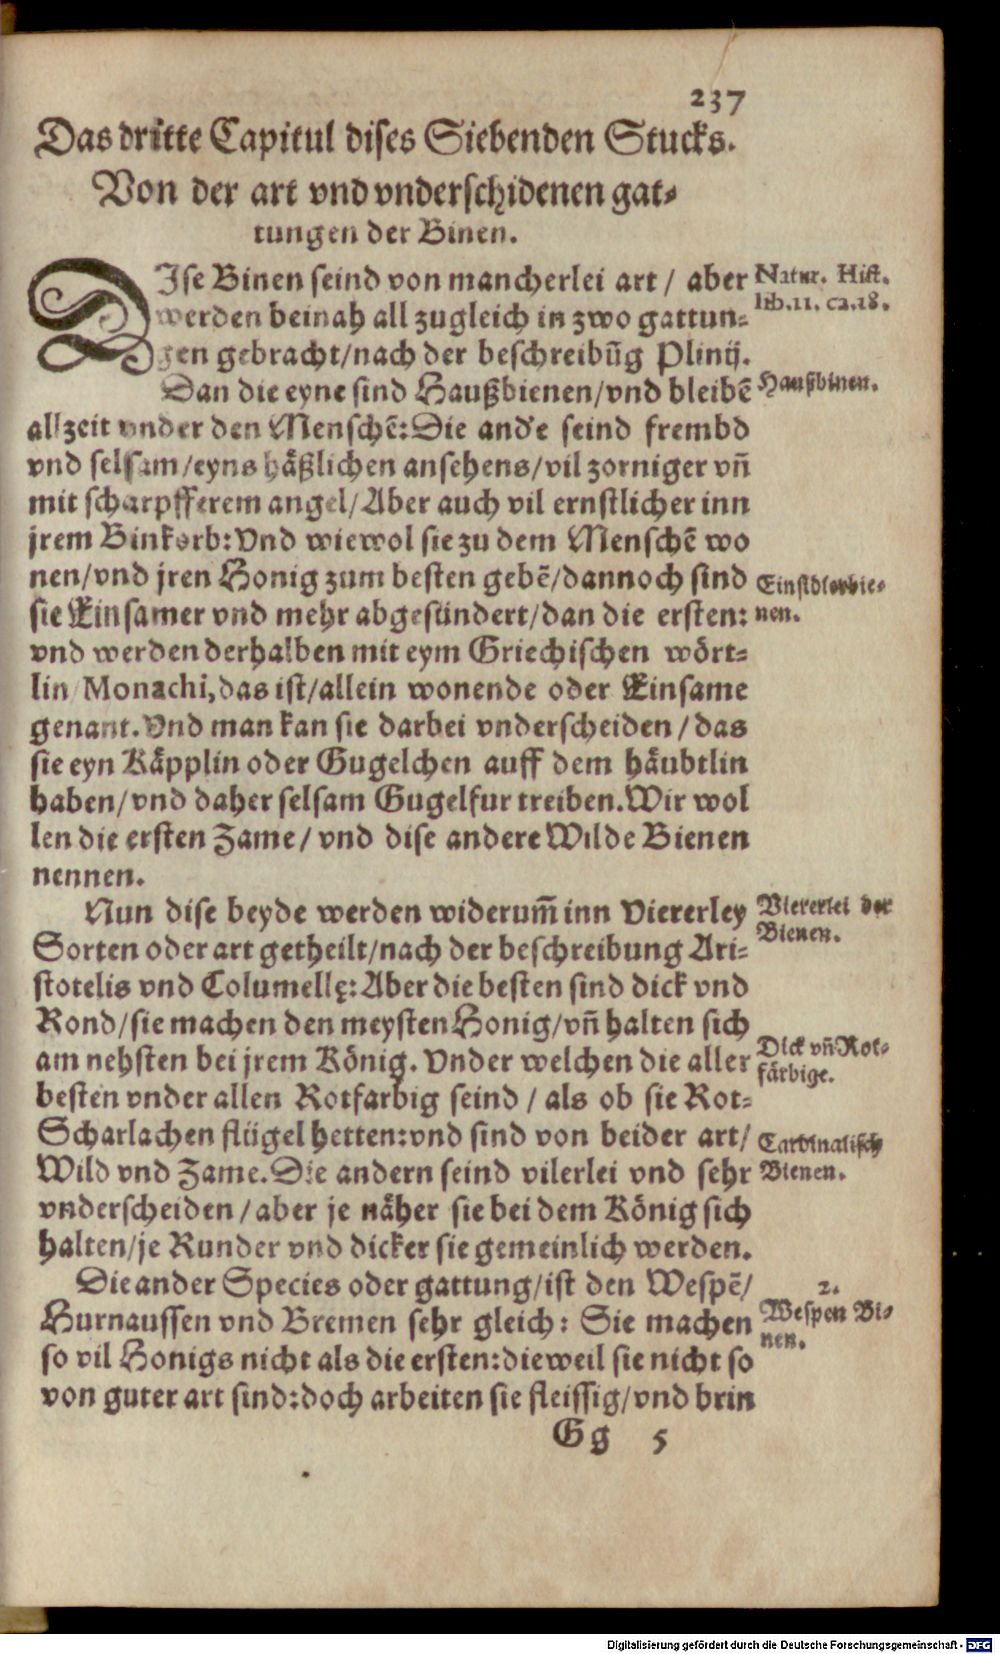 237
Das dritte Capitul dises Siebenden Stucks.
Von der art vnd vnderschidenen gat⸗
tungen der Binen.
DIse Binen seind von mancherlei art / aber
werden beinah all zugleich in zwo gattun⸗
gen gebracht/nach der beschreibūg Plinij.
Dan die eyne sind Haußbienen/vnd bleibē
allzeit vnder den Menschē: Die and'e seind frembd
vnd selsam/eyns häßlichen ansehens/vil zorniger vñ
mit scharpfferem angel/Aber auch vil ernstlicher inn
jrem Binkorb: Vnd wiewol sie zu dem Menschē wo
nen/vnd jren Honig zum besten gebē/dannoch sind
sie Einsamer vnd mehr abgesündert/dan die ersten:
vnd werden derhalben mit eym Griechischen wört⸗
lin Monachi, das ist/allein wonende oder Einsame
genant. Vnd man kan sie darbei vnderscheiden / das
sie eyn Käpplin oder Gugelchen auff dem häubtlin
haben/vnd daher selsam Gugelfur treiben. Wir wol
len die ersten Zame/ vnd dise andere Wilde Bienen
nennen.
Nun dise beyde werden widerum̄ inn Viererley
Sorten oder art getheilt/nach der beschreibung Ari⸗
stotelis vnd Columellę: Aber die besten sind dick vnd
Rond/sie machen den meysten Honig/vñ halten sich
am nehsten bei jrem König. Vnder welchen die aller
besten vnder allen Rotfarbig seind / als ob sie Rot⸗
Scharlachen flügel hetten: vnd sind von beider art/
Wild vnd Zame. Die andern seind vilerlei vnd sehr
vnderscheiden / aber je näher sie bei dem König sich
halten/je Runder vnd dicker sie gemeinlich werden.
Die ander Species oder gattung/ist den Wespē/
Hurnaussen vnd Bremen sehr gleich: Sie machen
so vil Honigs nicht als die ersten: dieweil sie nicht so
von guter art sind: doch arbeiten sie fleissig/vnd brin
Gg 5
Natur. Hist.
lib. 11. ca. 18.
Haußbinen.
Einsidlerbie⸗
nen.
Viererlei der
Bienen.
Dick vñ Rot⸗
färbige.
Cardinalisch
Bienen.
2.
Wespen Bi⸗
nen.
Digitalisierung gefördert durch die Deutsche Forschungsgemeinschaft - DFG